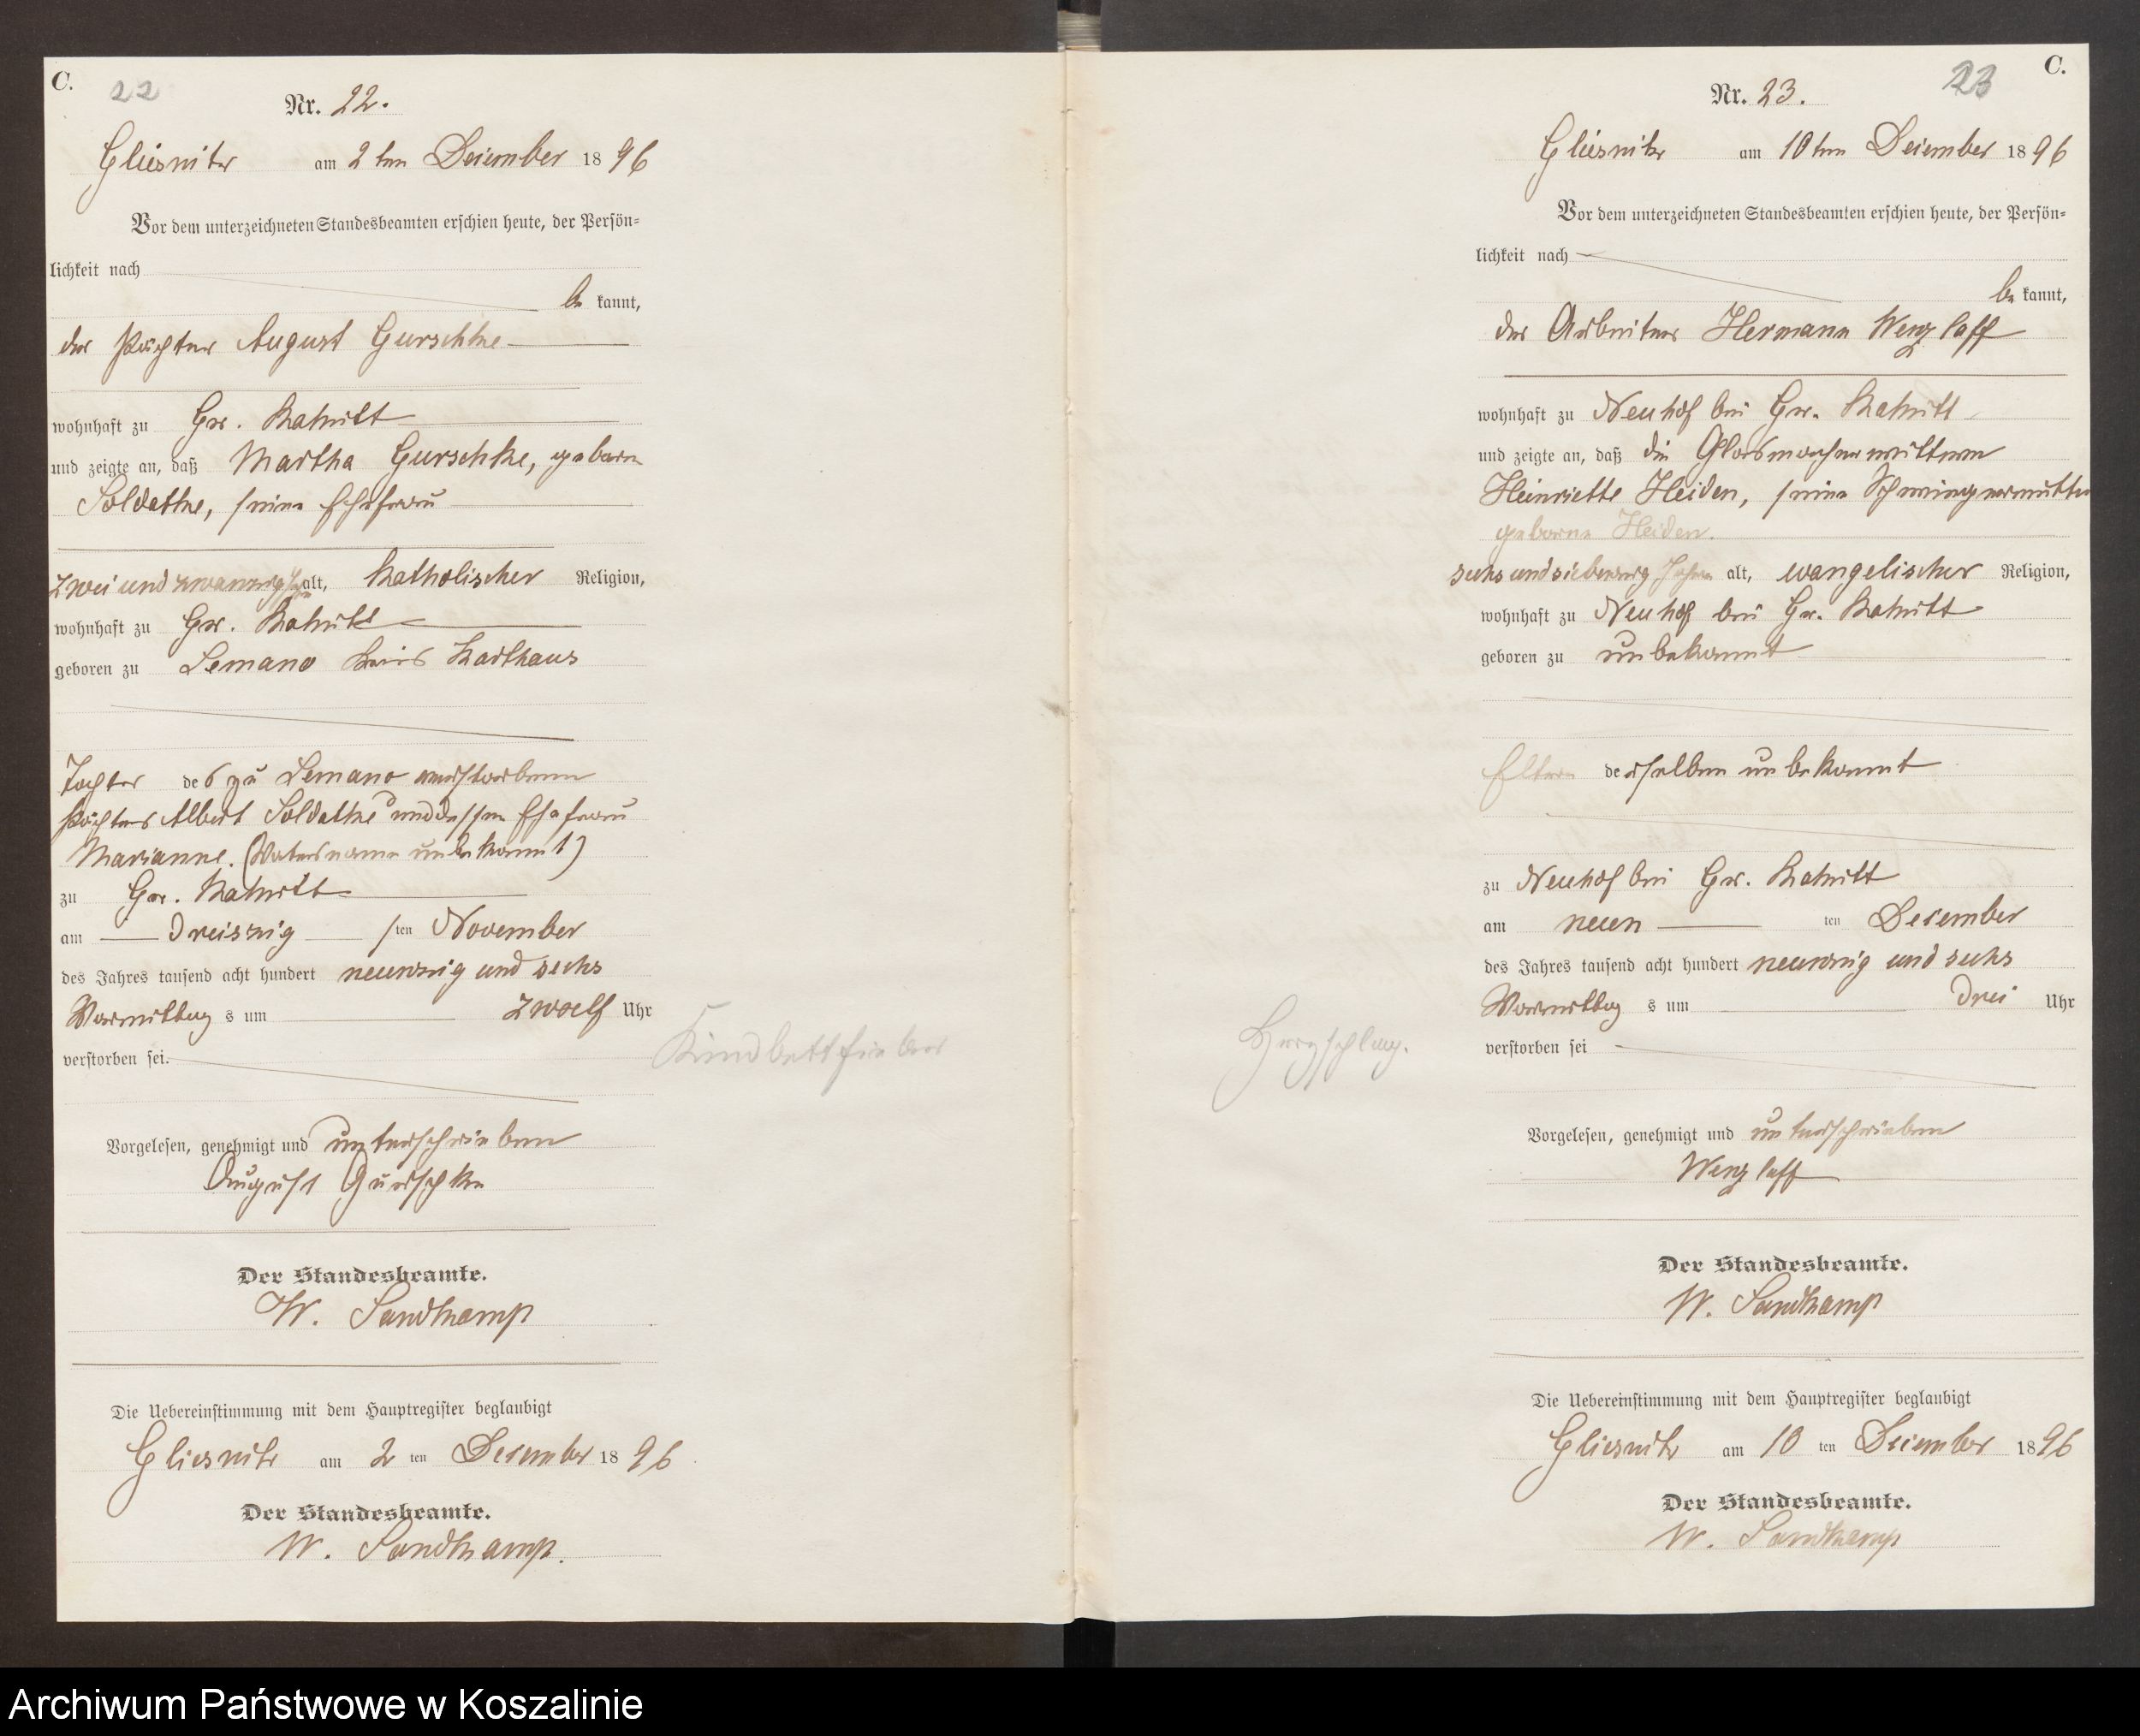 C.
22
Nr. 22.
Gliesnitz am 2ten December 1896
Vor dem unterzeichneten Standesbeamten erschien heute, der Persön=
lichkeit nach
be kannt,
der Pächter August Gurschke
wohnhaft zu Gr. Katnitt
und zeigte an, daß Martha Gurschke, geborne
Soldatke, seine Ehefrau
zwei und zwanzig J. alt, Katholischer Religion,
wohnhaft zu Gr. Katnitt
geboren zu Lemano Kreis Karthaus
Tochter des zu Lemano verstorbenen
Pächters Albert Soldatke und dessen Ehefrau
Marianne. (Vatersname unbekannt)
zu Gr. Katnitt
am dreiszig sten November
des Jahres tausend acht hundert neunzig und sechs
Vormittag s um zwoelf Uhr
verstorben sei.
Kindbettfieber
Vorgelesen, genehmigt und unterschrieben
August Gurschke
Der Standesbeamte.
W. Sandkamp
Die Uebereinstimmung mit dem Hauptregister beglaubigt
Gliesnitz am 2 ten December 1896
Der Standesbeamte.
W. Sandkamp.
C.
23
Nr. 23.
Gliesnitz am 10ten December 1896
Vor dem unterzeichneten Standesbeamten erschien heute, der Persön=
lichkeit nach
be kannt,
der Arbeiter Hermann Wenzlaff
wohnhaft zu Neuhof bei Gr. Katnitt
und zeigte an, daß die Glasmacherwittwe
Heinriette Heiden, seine Schwiegermutter
geborne Heiden.
sechs und siebenzig Jahre alt, evangelischer Religion,
wohnhaft zu Neuhof bei Gr. Katnitt
geboren zu unbekannt
Eltern derselben unbekannt
zu Neuhof bei Gr. Katnitt
am neun ten December
des Jahres tausend acht hundert neunzig und sechs
Vormittag s um drei Uhr
verstorben sei
Herzschlag.
Vorgelesen, genehmigt und unterschrieben
Wenzlaff
Der Standesbeamte.
W. Sandkamp
Die Uebereinstimmung mit dem Hauptregister beglaubigt
Gliesnitz am 10 ten December 1896
Der Standesbeamte.
W. Sandkamp
Archiwum Państwowe w Koszalinie